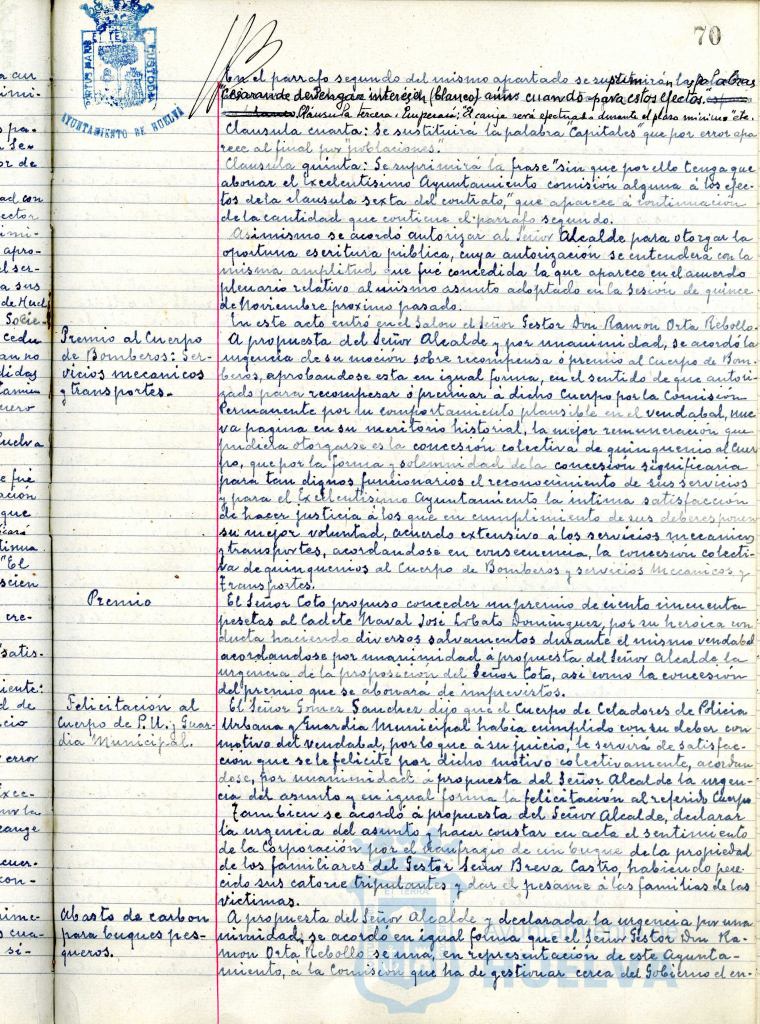 70
AYUNTAMIENTO DE HUELVA
En el párrafo segundo del mismo apartado se suprimirán las palabras
"Cesarán de devengar intereses (blanco) aún cuando para estos efectos."
Cláusula tercera: Empezará; El canje será efectuado durante el plazo mínimo" etc.
Clausula cuarta: Se sustituirá la palabra "Capitales" que por error apa
rece al final por "poblaciones".
Clausula quinta: Se suprimirá la frase "sin que por ello tenga que
abonar el Excelentísimo Ayuntamiento comisión alguna á los efec-
tos de la clausula sexta del contrato," que aparece á continuación
de la cantidad que contiene el párrafo segundo.
Asimismo se acordó autorizar al Señor Alcalde para otorgar la
oportuna escritura pública, cuya autorización se entenderá con la
misma amplitud que fué concedida la que aparece en el acuerdo
plenario relativo al mismo asunto adoptado en la Sesión de quince
de Noviembre próximo pasado.
En este acto entró en el Salon el Señor Gestor Don Ramon Orta Rebollo.
Premio al Cuerpo
de Bomberos: Ser-
vicios mecanicos
y transportes.-
A propuesta del Señor Alcalde y por unanimidad, se acordó la
urgencia de su moción sobre recompensa ó premio al Cuerpo de Bom-
beros, aprobandose esta en igual forma, en el sentido de que autori-
zado para recompensar ó premiar á dicho Cuerpo por la Comision
Permanente por su comportamiento plausible en el vendabal, nue
va pagina en su meritorio historial, la mejor remuneración que
pudiera otorgarse es la concesión colectiva de quinquenio al Cuer
po, que por la forma y solemnidad de la concesión significaria
para tan dignos funcionarios el reconocimiento de sus servicios
y para el Excelentísimo Ayuntamiento la íntima satisfacción
de hacer justicia á los que en cumplimiento de sus deberes ponen
su mejor voluntad, acuerdo extensivo á los servicios mecanicos
y transportes, acordandose en consecuencia, la concesion colecti-
va de quinquenios al Cuerpo de Bomberos y servicios Mecanicos y
Transportes.
Premio
El Señor Coto propuso conceder un premio de ciento cincuenta
pesetas al Cadete Naval José Lobato Dominguez, por su heroica con
ducta haciendo diversos salvamentos durante el mismo vendabal
acordandose por unanimidad á propuesta del Señor Alcalde la
urgencia de la proposición del Señor Coto, así como la concesion
del premio que se abonará de imprevistos.
Felicitación al
Cuerpo de P.U. y Guar-
dia Municipal.
El Señor Gomez Sanchez dijo que el Cuerpo de Celadores de Policia
Urbana y Guardia Municipal habia cumplido con su deber con
motivo del vendabal, por lo que á su juicio, le servirá de satisfac-
cion que se le felicite por dicho motivo colectivamente, acordan
dose, por unanimidad á propuesta del Señor Alcalde la urgen-
cia del asunto y en igual forma la felicitación al referido Cuerpo
Tambien se acordó á propuesta del Señor Alcalde, declarar
la urgencia del asunto y hacer constar en acta el sentimiento
de la Corporación por el naufragio de un buque de la propiedad
de los familiares del Gestor Señor Breva Castro, habiendo pere-
cido sus catorce tripulantes y dar el pesame á las familias de las
victimas.
Abasto de carbon
para buques pes-
queros.
A propuesta del Señor Alcalde y declarada la urgencia por una
nimidad, se acordó en igual forma que el Señor Gestor Don Ra-
mon Orta Rebollo se una, en representación de este Ayunta-
miento, á la Comision que ha de gestionar cerca del Gobierno el en-
Ayuntamiento de
HUELVA